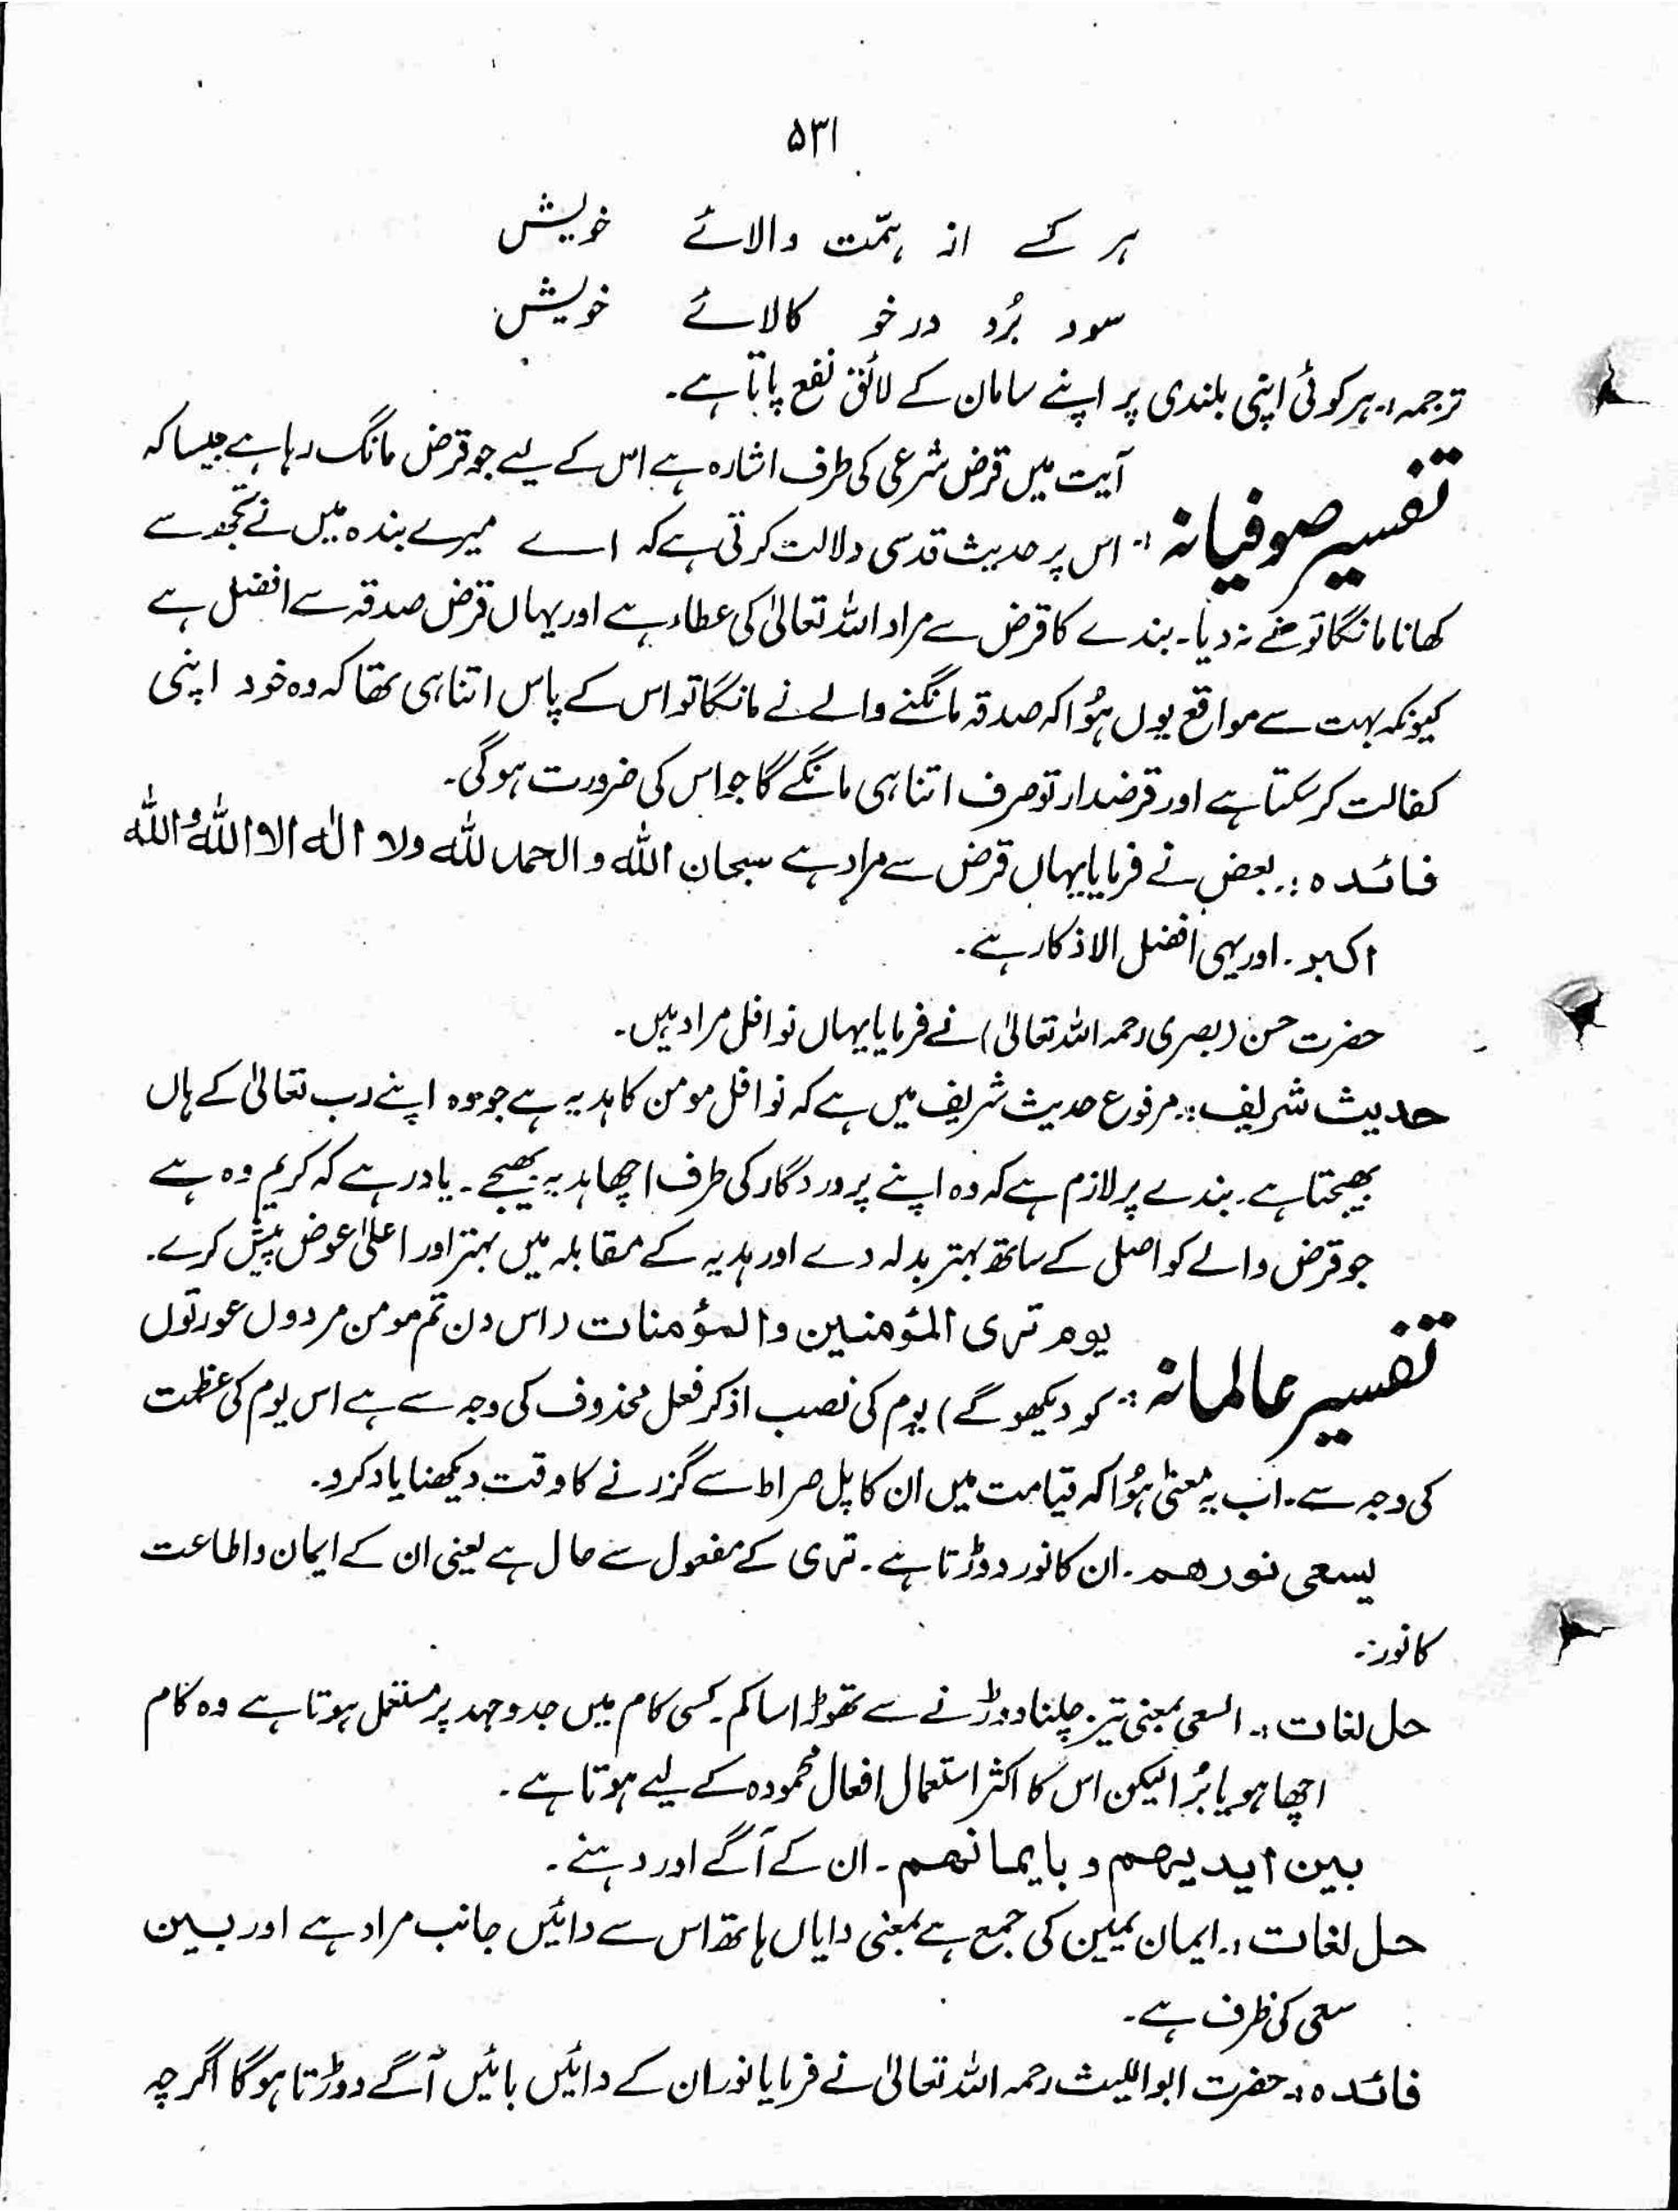 ۵۳۱
ہر کسے از ہمّت والائے خویش
سود بُرد درخو کالائے خویش
ترجمہ:۔ ہر کوئی اپنی بلندی پر اپنے سامان کے لائق نفع پاتا ہے۔
آیت میں قرض شرعی کی طرف اشارہ ہے اس کے لیے جو قرض مانگ رہا ہے جیسا کہ
تفسیر صوفیانہ :۔ اس پر حدیث قدسی دلالت کرتی ہے کہ اے میرے بندہ میں نے تجھ سے
کھانا مانگا تو نے نہ دیا۔ بندے کا قرض سے مراد اللہ تعالیٰ کی عطاء ہے اور یہاں قرض صدقہ سے افضل ہے
کیونکہ بہت سے مواقع یوں ہُوا کہ صدقہ مانگنے والے نے مانگا تو اس کے پاس اتنا ہی تھا کہ وہ خود اپنی
کفالت کر سکتا ہے اور قرضدار تو صرف اتنا ہی مانگے گا جو اس کی ضرورت ہو گی۔
فائدہ :۔ بعض نے فرمایا یہاں قرض سے مراد ہے سبحان اللہ و الحمد للہ ولا الٰہ الا اللہ و اللہ
اکبر ۔ اور یہی افضل الاذکار ہے۔
حضرت حسن (بصری رحمہ اللہ تعالیٰ) نے فرمایا یہاں نوافل مراد ہیں۔
حدیث شریف :۔ مرفوع حدیث شریف میں ہے کہ نوافل مومن کا ہدیہ ہے جو وہ اپنے رب تعالیٰ کے ہاں
بھیجتا ہے۔ بندے پر لازم ہے کہ وہ اپنے پروردگار کی طرف اچھا ہدیہ بھیجے۔ یاد رہے کہ کریم وہ ہے
جو قرض والے کو اصل کے ساتھ بہتر بدلہ دے اور ہدیہ کے مقابلہ میں بہتر اور اعلیٰ عوض پیش کرے۔
یوم تری المؤمنین والمؤمنات (اس دن تم مومن مردوں عورتوں
تفسیر عالمانہ :۔ کو دیکھو گے) یوم کی نصب اذکر فعل محذوف کی وجہ سے ہے اس یوم کی عظمت
کی وجہ سے۔ اب یہ معنیٰ ہُوا کہ قیامت میں ان کا پل صراط سے گزرنے کا وقت دیکھنا یاد کرو۔
یسعی نورھم ۔ ان کا نور دوڑتا ہے۔ تری کے مفعول سے حال ہے یعنی ان کے ایمان و اطاعت
کا نور:۔
حل لغات :۔ السعی بمعنی تیز چلنا دوڑنے سے تھوڑا سا کم۔ کسی کام میں جدوجہد پر مستعمل ہوتا ہے وہ کام
اچھا ہو یا بُرا لیکن اس کا اکثر استعمال افعال محمودہ کے لیے ہوتا ہے۔
بین ایدیھم و بایمانھم ۔ ان کے آگے اور دہنے۔
حل لغات :۔ ایمان یمین کی جمع ہے بمعنی دایاں ہاتھ اس سے دائیں جانب مراد ہے اور بین
سعی کی ظرف ہے۔
فائدہ :۔ حضرت ابواللیث رحمہ اللہ تعالیٰ نے فرمایا نور ان کے دائیں بائیں آگے دوڑتا ہو گا اگرچہ